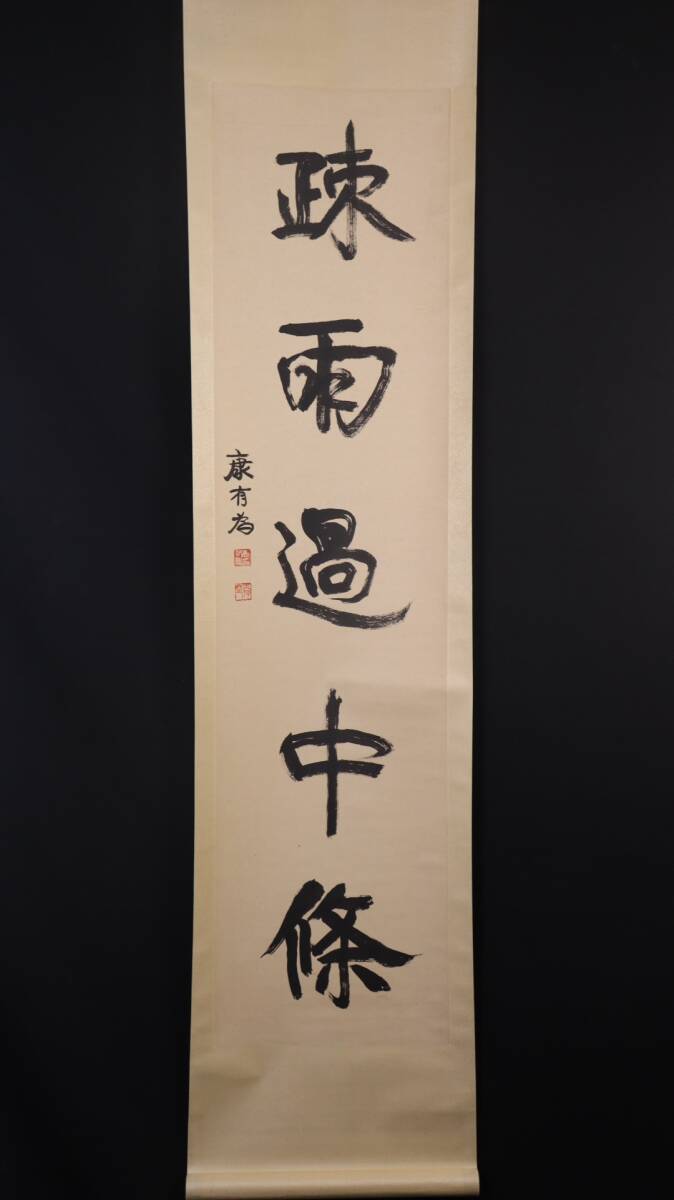 疎雨過中條
康有為